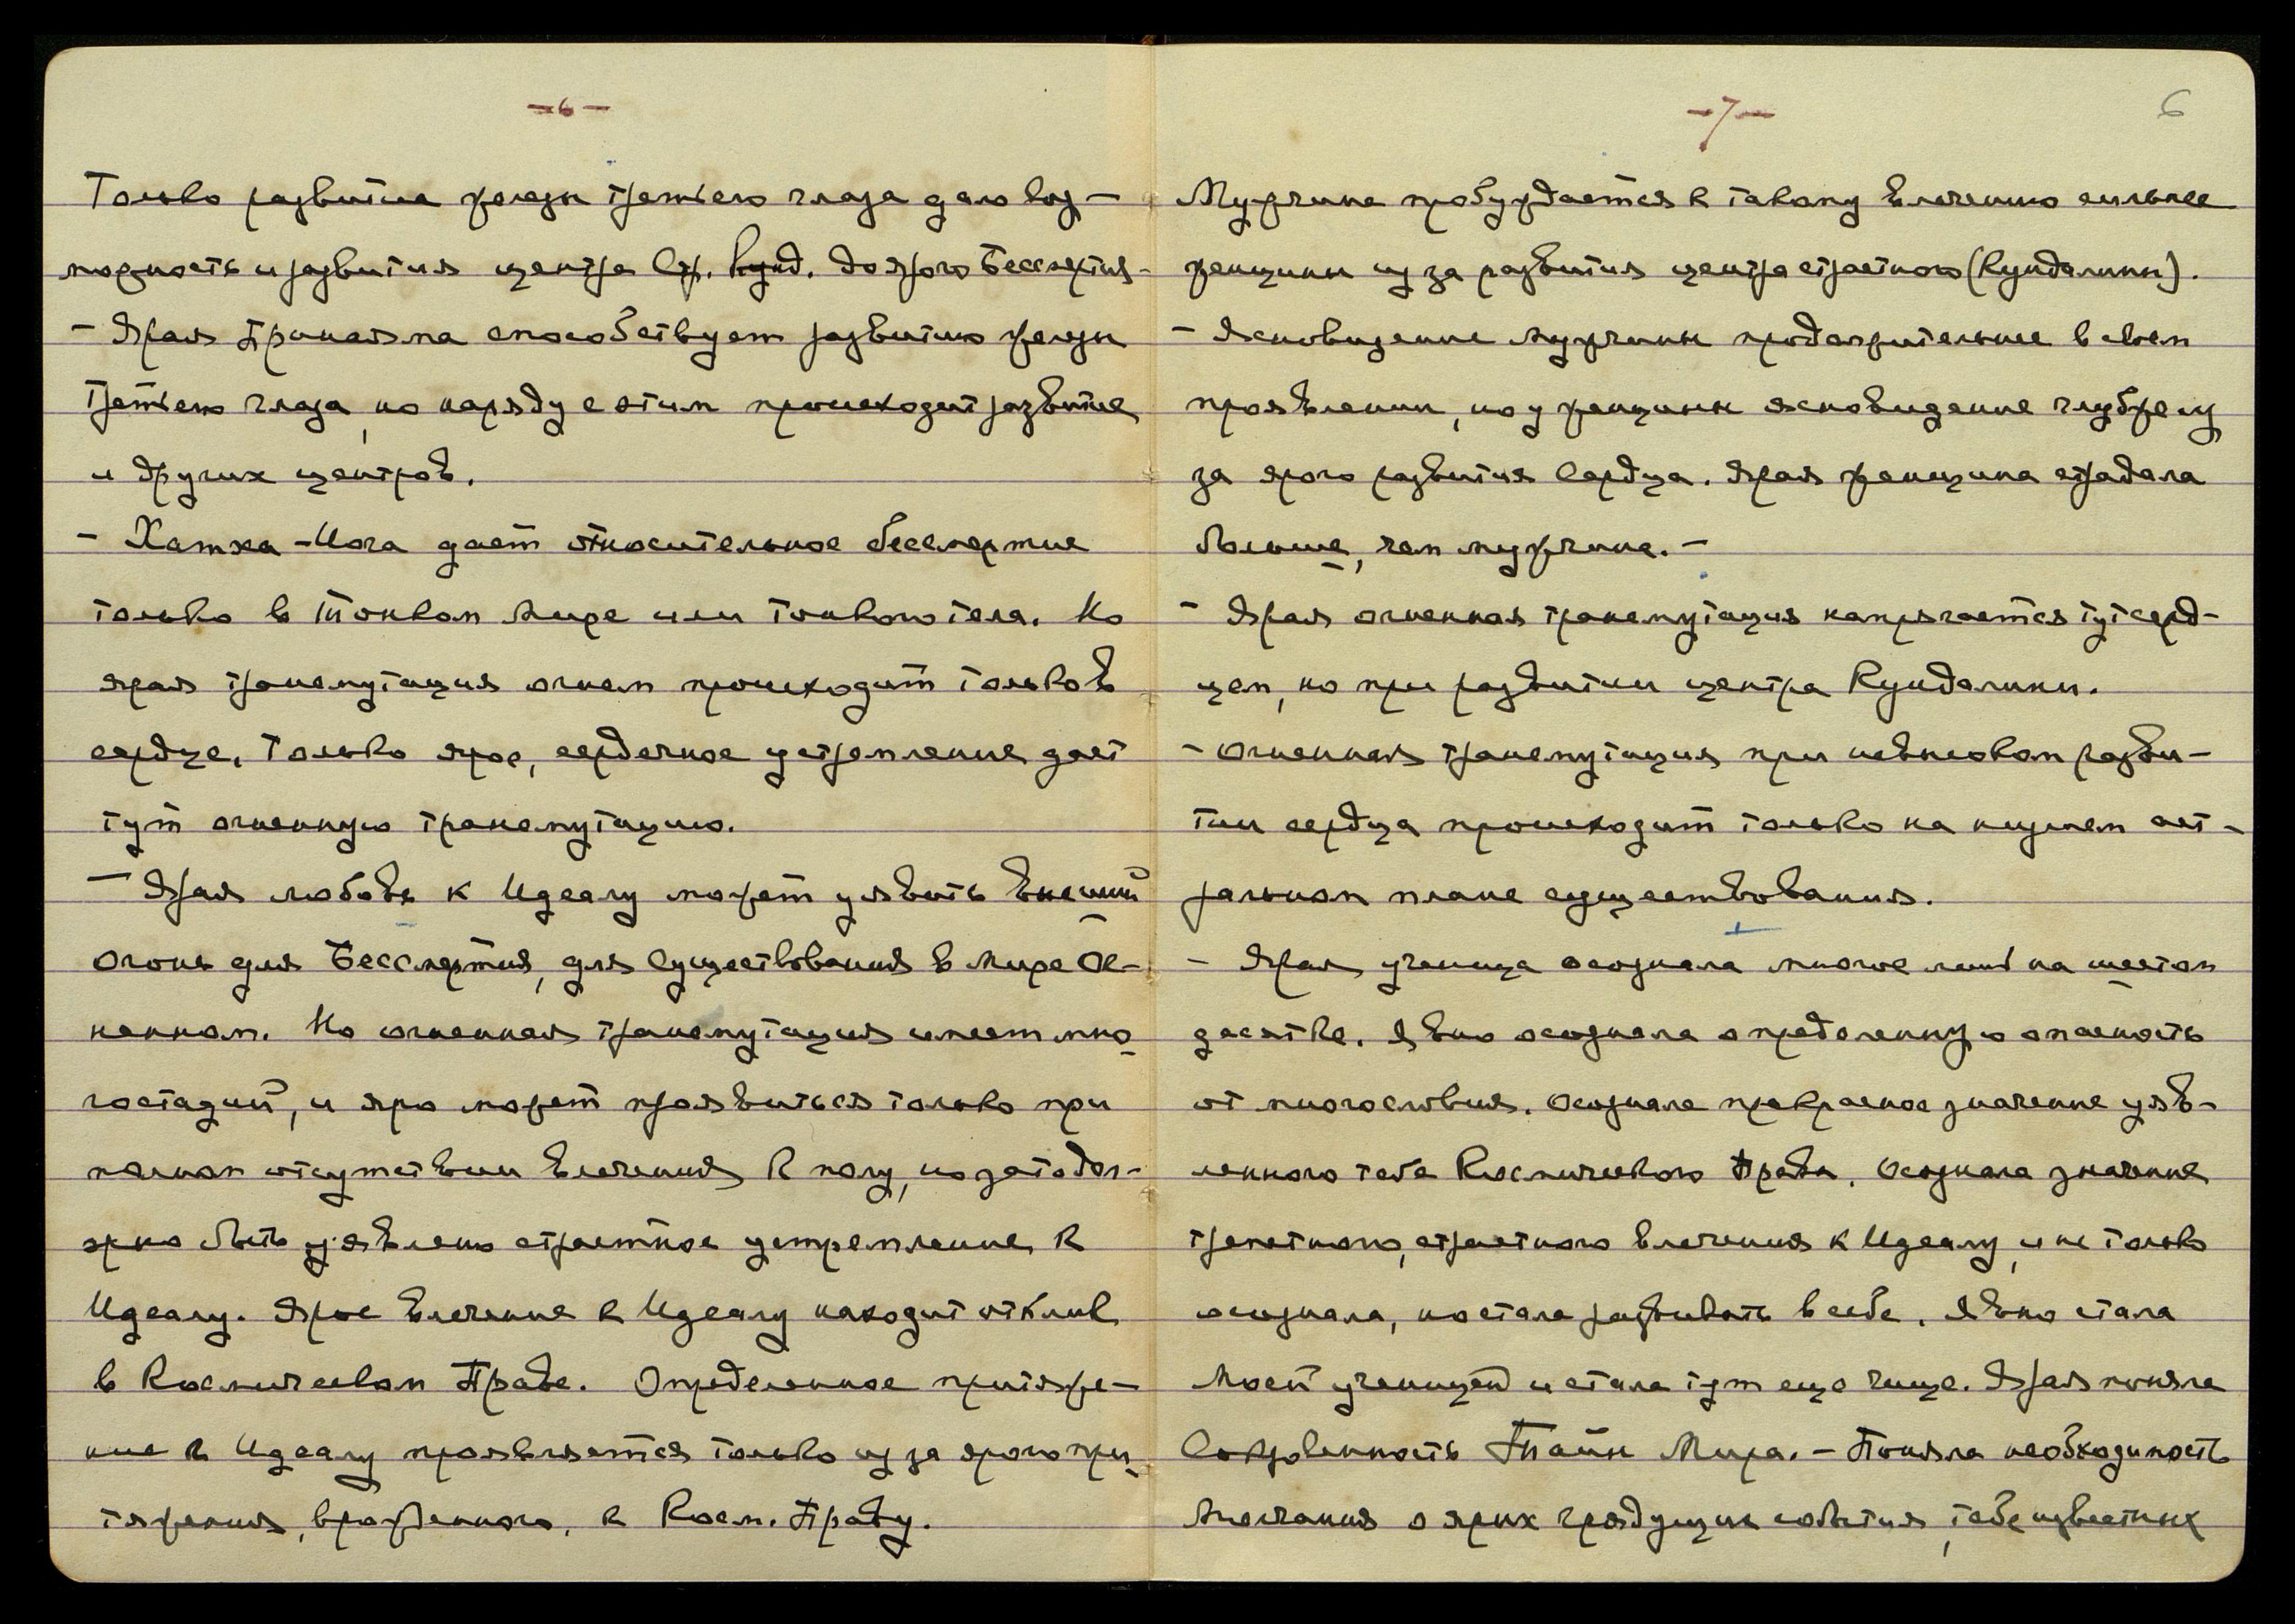 -6-
Только развитие железы третьего глаза дало воз-
можность и развития центра Стр. Кунд. до ярого Бессмертия-
- Ярая Пранаяма способствует развитию железы
третьего глаза, но наряду с этим происходит развитие
и других центров.
- Хатха-Йога дает относительное бессмертие
только в Тонком Мире или тонкого тела. Но
ярая трансмутация огнем происходит только в
сердце. Только ярое, сердечное устремление дает
тут огненную трансмутацию.
- Ярая любовь к Идеалу может уявить внеший
огонь для Бессмертия, для Существования в Мире Ог-
ненном. Но огненная трансмутация имеет мно-
го стадий, и яро может проявиться только при
полном отсутствии влечения к полу, но зато дол-
жно быть уявлено страстное устремление к
Идеалу. Ярое влечение к Идеалу находит отклик
в Космическом Праве. Определенное притяже-
ние к Идеалу проявляется только из за ярого при-
тяжения, врожденного, к Косм. Праву.
-7-
6
Мужчина пробуждается к такому влечению сильнее
женщины из за развития центра страстного (Кундалини).
- Ясновидение Мужчины продолжительнее в своем
проявлении, но у женщины ясновидение глубже из
за ярого развития Сердца. Ярая женщина страдала
больше, чем мужчина. -
- Ярая огненная трансмутация напрягается тут серд-
цем, но при развитии центра Кундалини.
- Огненная трансмутация при невысоком разви-
тии сердца происходит только на низшем аст-
ральном плане существования.
- Ярая ученица осознала многое лишь на шестом
десятке. Явно осознала определенную опасность
от многословия. Осознала прекрасное значение уяв-
ленного тебе Космического Права. Осознала значение
трепетного, страстного влечения к Идеалу, и не только
осознала, но стала развивать в себе. Явно стала
Моей ученицей и стала тут еще чище. Ярая поняла
Сокровенность Тайн Мира. - Поняла необходимость
Молчания о ярых грядущих событиях, тебе известных